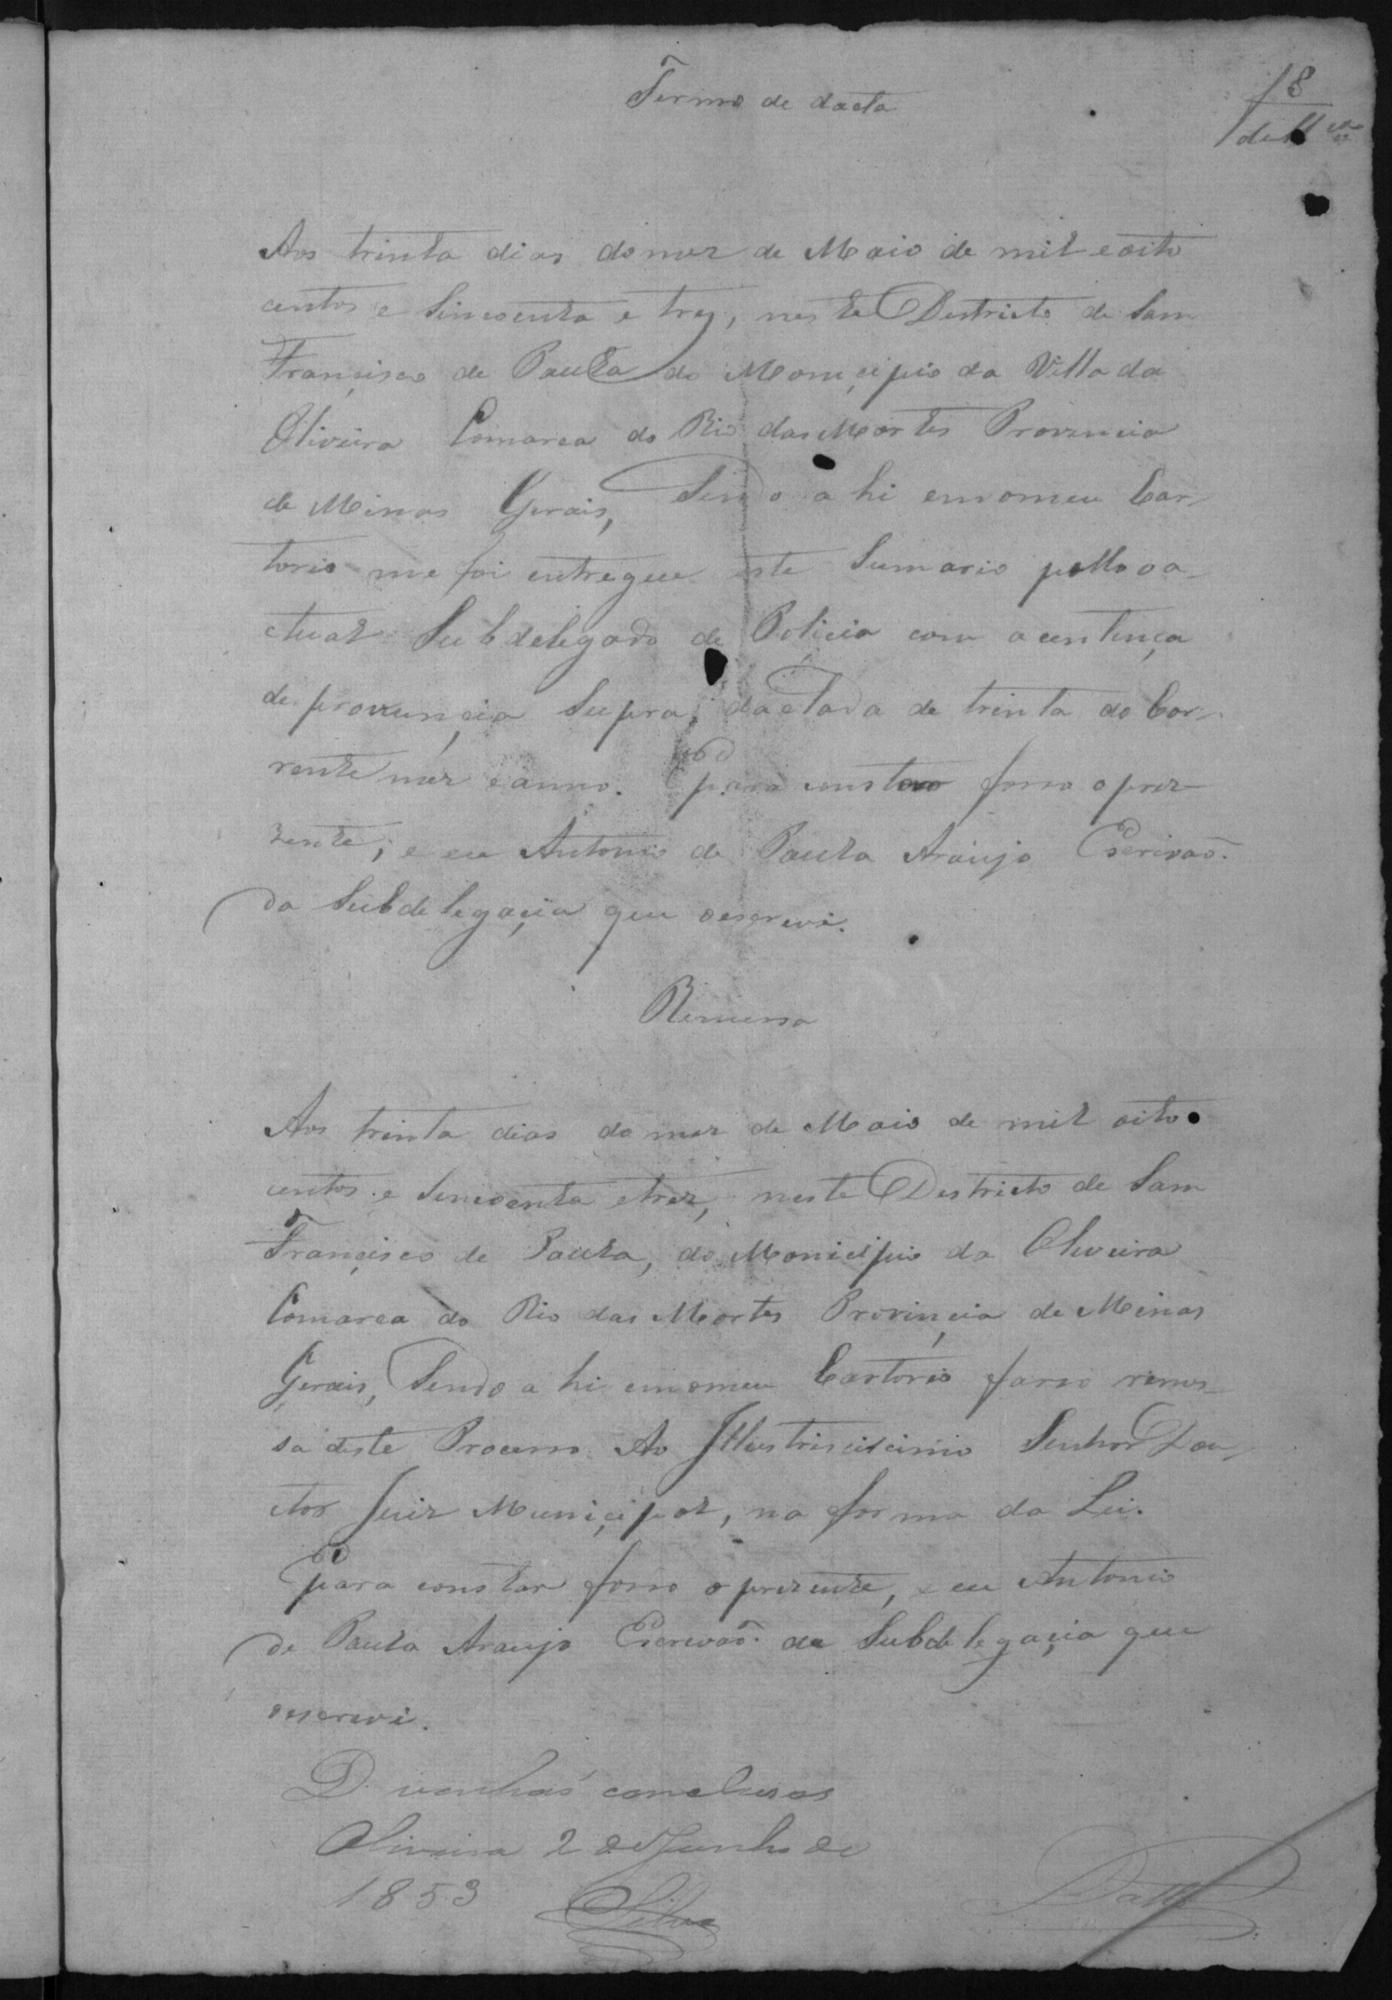 18
Termo de dacta
Aos trinta dias do mez de Maio de mil e oito
centos e Sincoenta e trez, neste Destricto de Sam
Francisco de Paula do Monicipio da Villa da
Oliveira Comarca do Rio das Mortes Provincia
de Minas Gerais, Sendo a hi em o meu Car-
torio me foi entregue este Sumario pello a-
ctual Subdelegado de Policia com a centença
de pronuncia Supra, dactada de trinta do Cor-
rente mez e anno. Para constar fasso o prez-
zente, e eu Antonio de Paula Araujo Escrivaõ
da Subdelegacia que o escrevi.
Remessa
Aos trinta dias do mez de Maio de mil oito
centos e Sincoenta e trez, neste Destricto de Sam
Francisco de Paula, do Monicipio da Oliveira
Comarca do Rio das Mortes Provincia de Minas
Gerais, Sendo a hi em o meu Cartorio fasso remes-
sa deste Processo Ao Illustriscicimo Senhor Dou-
ctor Juiz Municipal, na forma da Lei.
Para constar fasso o prezente, e eu Antonio
de Paula Araujo Escrivaõ da Subdelegacia que
o escrevi.
D. venhaõ conclusos
Oliveira 2 de Junho de
1853 Silva